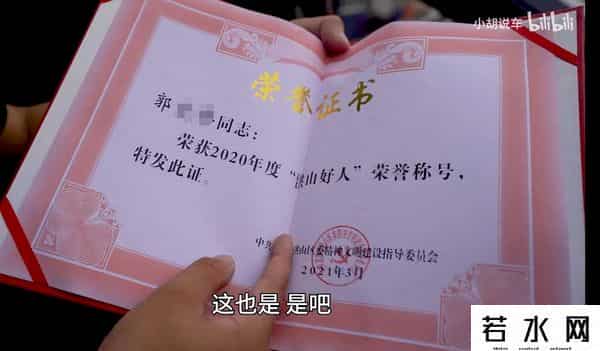 小胡说车 bilibili
荣誉证书
郭 同志：
荣获2020年度“ 山好人”荣誉称号，
特发此证。
中共 山区委精神文明建设指导委员会
2021年3月
这也是 是吧
若水网